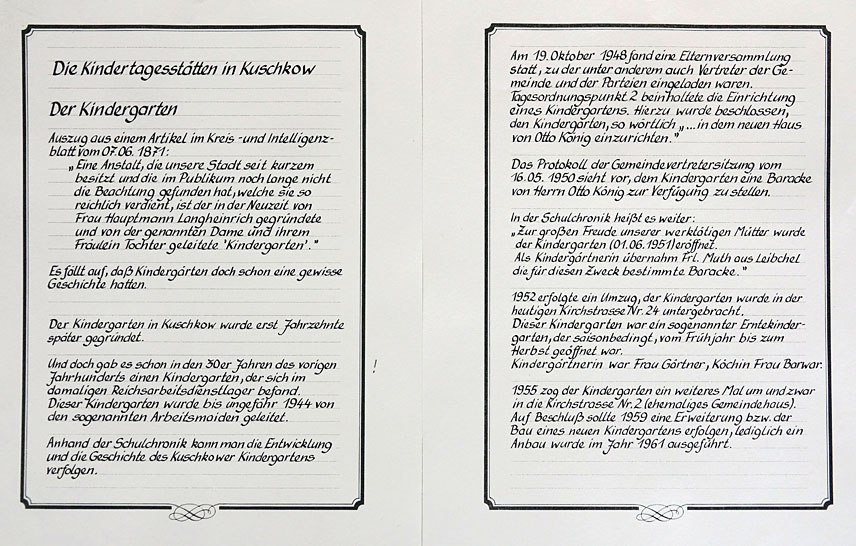 Die Kindertagesstätten in Kuschkow
Der Kindergarten
Auszug aus einem Artikel im Kreis -und Intelligenz-
blatt vom 07.06. 1871:
„Eine Anstalt, die unsere Stadt seit kurzem
besitzt und die im Publikum noch lange nicht
die Beachtung gefunden hat, welche sie so
reichlich verdient, ist der in der Neuzeit von
Frau Hauptmann Langheinrich gegründete
und von der genannten Dame und ihrem
Fräulein Tochter geleitete 'Kindergarten'."
Es fällt auf, daß Kindergärten doch schon eine gewisse
Geschichte hatten.
Der Kindergarten in Kuschkow wurde erst Jahrzehnte
später gegründet.
Und doch gab es schon in den 30er Jahren des vorigen
Jahrhunderts einen Kindergarten, der sich im
damaligen Reichsarbeitsdienstlager befand.
Dieser Kindergarten wurde bis ungefähr 1944 von
den sogenannten Arbeitsmaiden geleitet.
Anhand der Schulchronik kann man die Entwicklung
und die Geschichte des Kuschkower Kindergartens
verfolgen.
!
Am 19. Oktober 1948 fand eine Elternversammlung
statt, zu der unter anderem auch Vertreter der Ge-
meinde und der Parteien eingeladen waren.
Tagesordnungspunkt 2 beinhaltete die Einrichtung
eines Kindergartens. Hierzu wurde beschlossen,
den Kindergarten, so wörtlich „...in dem neuen Haus
von Otto König einzurichten."
Das Protokoll der Gemeindevertretersitzung vom
16.05. 1950 sieht vor, dem Kindergarten eine Baracke
von Herrn Otto König zur Verfügung zu stellen.
In der Schulchronik heißt es weiter:
„Zur großen Freude unserer werktätigen Mütter wurde
der Kindergarten (01.06.1951) eröffnet.
Als Kindergärtnerin übernahm Frl. Muth aus Leibchel
die für diesen Zweck bestimmte Baracke."
1952 erfolgte ein Umzug, der Kindergarten wurde in der
heutigen Kirchstrasse Nr. 24 untergebracht.
Dieser Kindergarten war ein sogenannter Erntekinder-
garten, der saisonbedingt, vom Frühjahr bis zum
Herbst geöffnet war.
Kindergärtnerin war Frau Gärtner, Köchin Frau Barwar.
1955 zog der Kindergarten ein weiteres Mal um und zwar
in die Kirchstrasse Nr. 2 (ehemaliges Gemeindehaus).
Auf Beschluß sollte 1959 eine Erweiterung bzw. der
Bau eines neuen Kindergartens erfolgen, lediglich ein
Anbau wurde im Jahr 1961 ausgeführt.